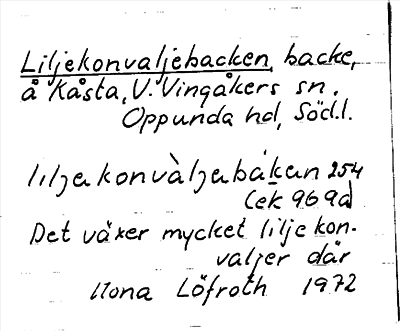 Liljekonvaljebacken, backe,
å Kåsta, V. Vingåkers sn.
Oppunda hd, Söd.l.
liljekonvàljebákan 254
Cek 969d
Det växer mycket liljekon-
valjer där
Ilona Löfroth 1972